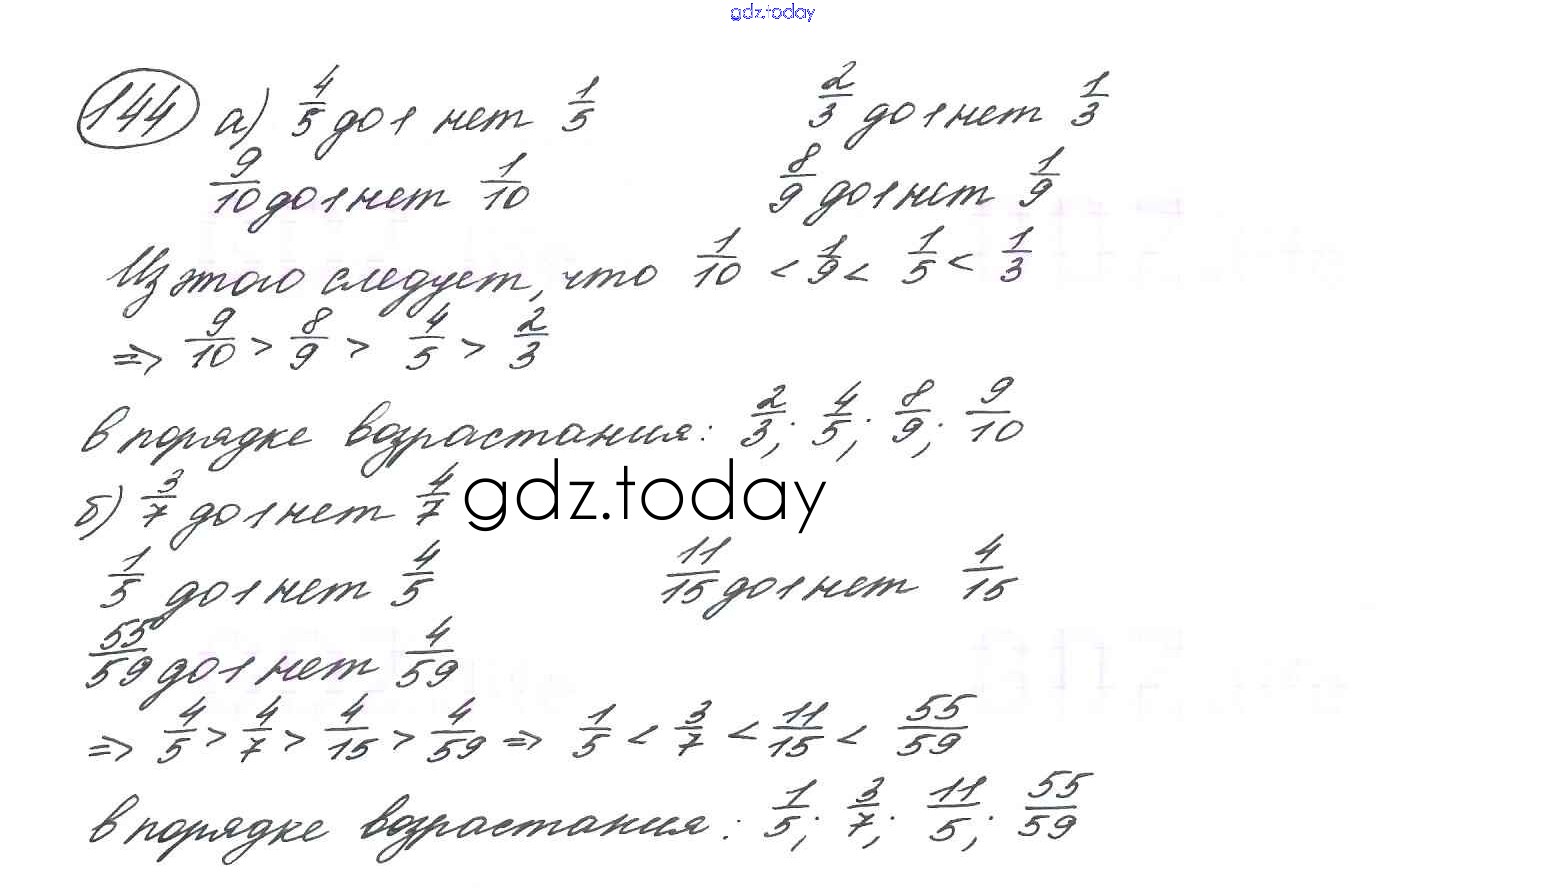 gdz.today
144 а) 4/5 до 1 нет 1/5 2/3 до 1 нет 1/3
9/10 до 1 нет 1/10 8/9 до 1 нет 1/9
Из этого следует, что 1/10 < 1/9 < 1/5 < 1/3
=> 9/10 > 8/9 > 4/5 > 2/3
в порядке возрастания: 2/3; 4/5; 8/9; 9/10
б) 3/7 до 1 нет 4/7 gdz.today
1/5 до 1 нет 4/5 11/15 до 1 нет 4/15
55/59 до 1 нет 4/59
=> 4/5 > 4/7 > 4/15 > 4/59 => 1/5 < 3/7 < 11/15 < 55/59
в порядке возрастания: 1/5; 3/7; 11/5; 55/59